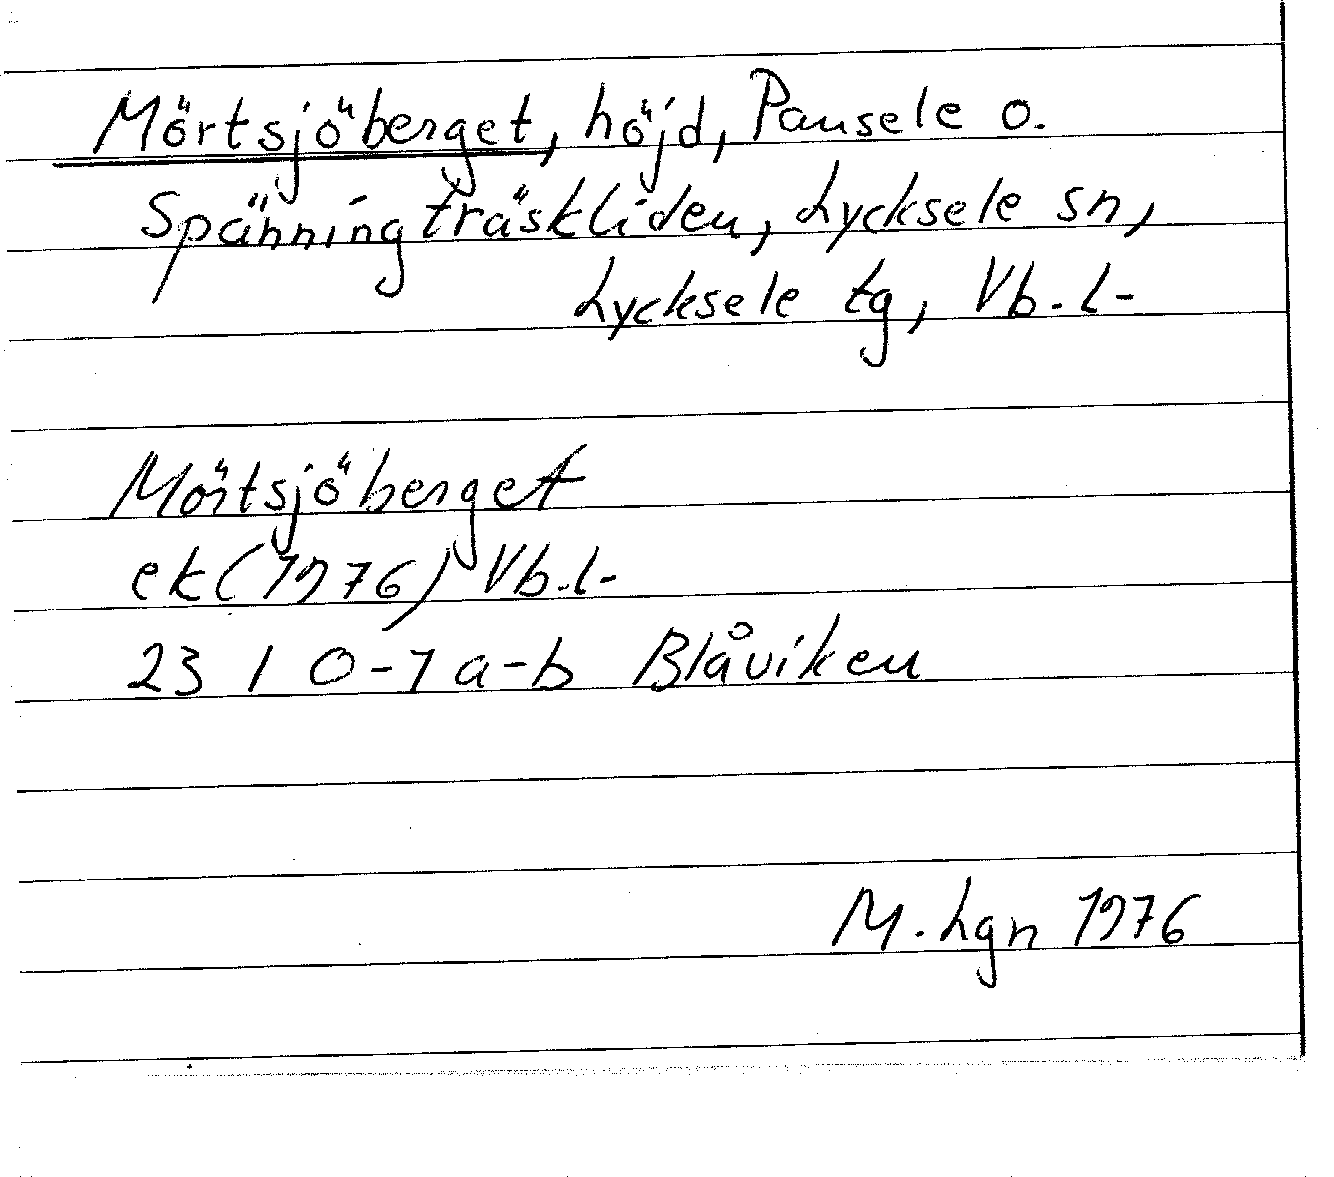 Mörtsjöberget, höjd, Pausele o.
Spänningträskliden, Lycksele sn,
Lycksele tg, Vb.l.
Mörtsjöberget
ek (1976) Vb.l.
23 I 0-1 a-b Blåviken
M. Lgn 1976